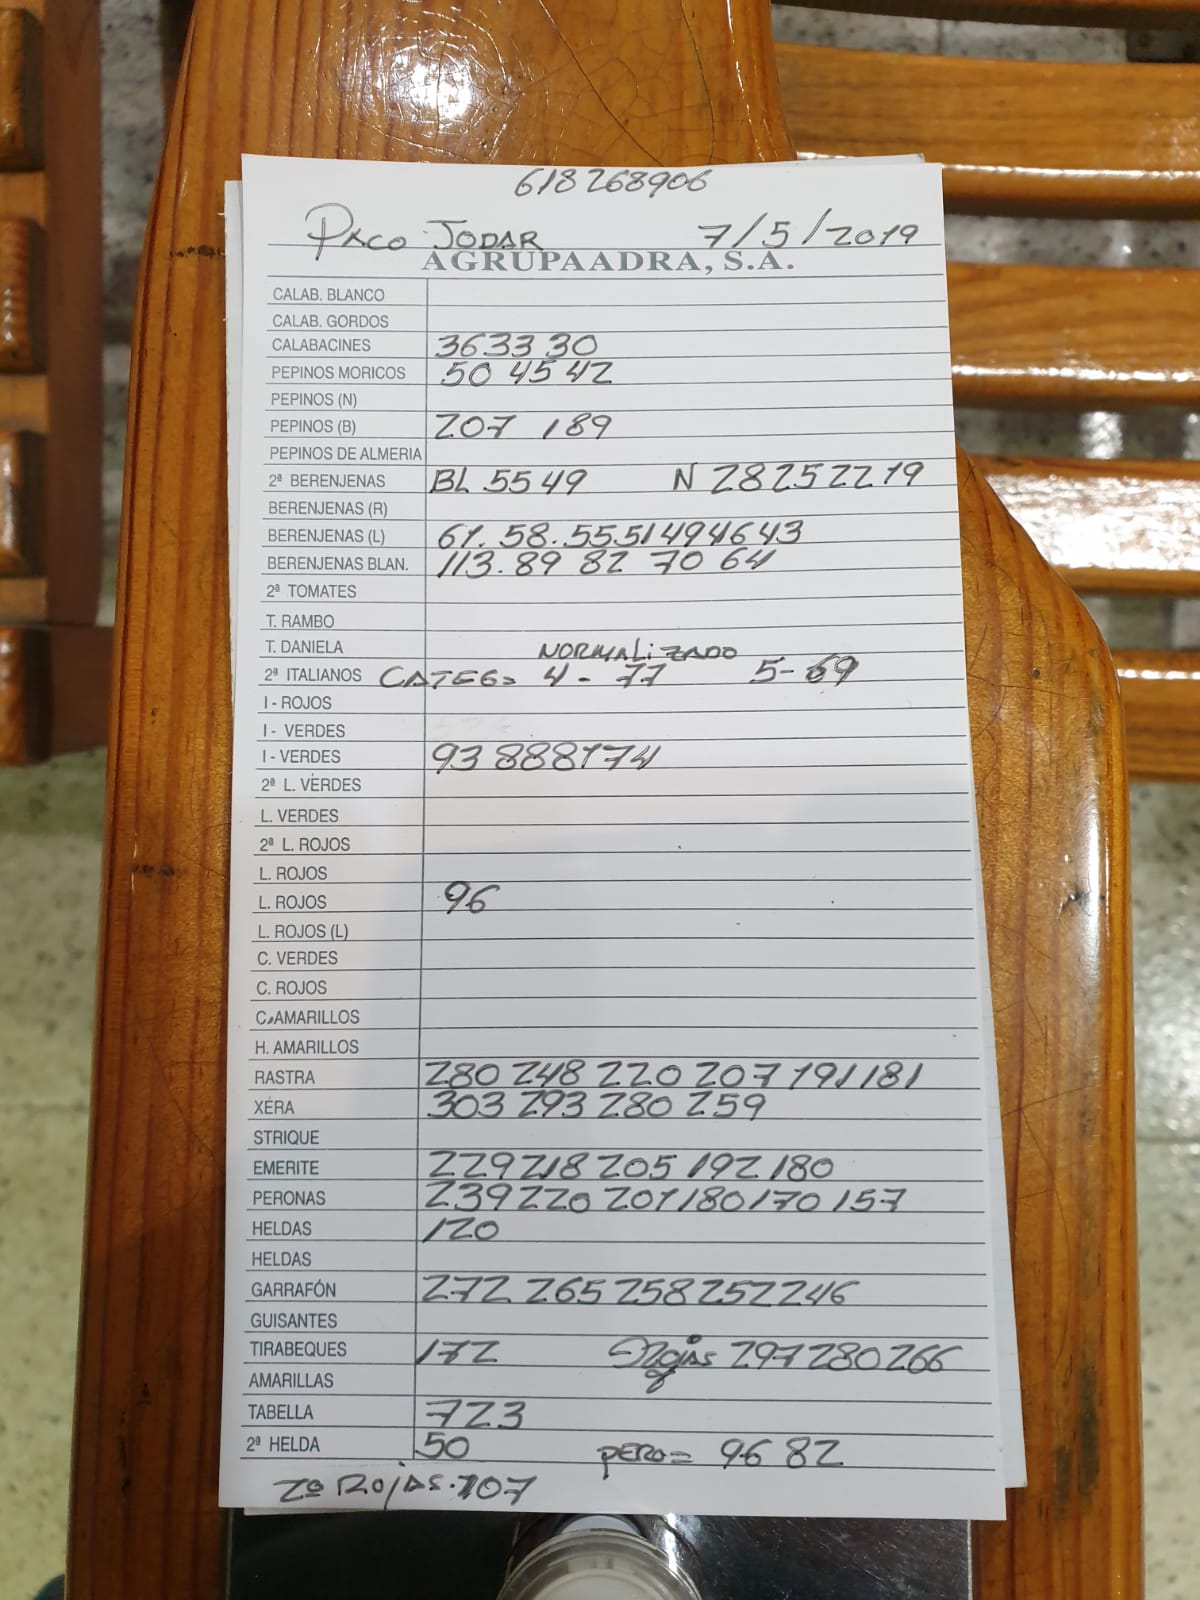 618 268906
PACO JODAR 7/5/2019
AGRUPAADRA, S.A.
CALAB. BLANCO
CALAB. GORDOS
CALABACINES 36 33 30
PEPINOS MORICOS 50 45 42
PEPINOS (N)
PEPINOS (B) 207 189
PEPINOS DE ALMERIA
2ª BERENJENAS BL 55 49 N 28 25 22 19
BERENJENAS (R)
BERENJENAS (L) 61. 58. 55. 51 49 46 43
BERENJENAS BLAN. 113. 89 82 70 64
2ª TOMATES
T. RAMBO
T. DANIELA NORMALIZADO
2ª ITALIANOS CATEG= 4 - 77 5 - 69
I - ROJOS
I - VERDES
I - VERDES 93 88 81 74
2ª L. VERDES
L. VERDES
2ª L. ROJOS
L. ROJOS
L. ROJOS 96
L. ROJOS (L)
C. VERDES
C. ROJOS
C. AMARILLOS
H. AMARILLOS
RASTRA 280 248 220 207 191 181
XÉRA 303 293 280 259
STRIQUE
EMERITE 229 218 205 192 180
PERONAS 239 220 201 180 170 157
HELDAS 120
HELDAS
GARRAFÓN 272 265 258 252 246
GUISANTES
TIRABEQUES 172 Rojas 297 280 266
AMARILLAS
TABELLA 723
2ª HELDA 50 pero= 96 82
2ª ROJAS. 107